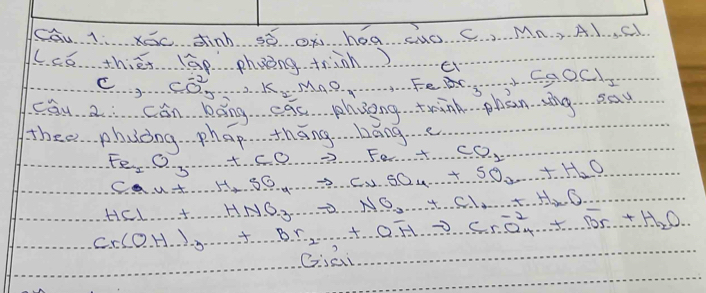 Câu 1: xác định số oxi hóa của C, Mn, Al, Cl
(có thiết lập phương trình)
C, CO₃²⁻, K₂MnO₄, FeCl₃, CaOCl₂
Câu 2: Cân bằng các phương trình phản ứng sau
theo phương pháp thăng bằng e
Fe₂O₃ + CO → Fe + CO₂
Cu + H₂SO₄ → CuSO₄ + SO₂ + H₂O
HCl + HNO₃ → NO₂ + Cl₂ + H₂O
Cr(OH)₃ + Br₂ + OH⁻ → CrO₄²⁻ + Br⁻ + H₂O
Giải